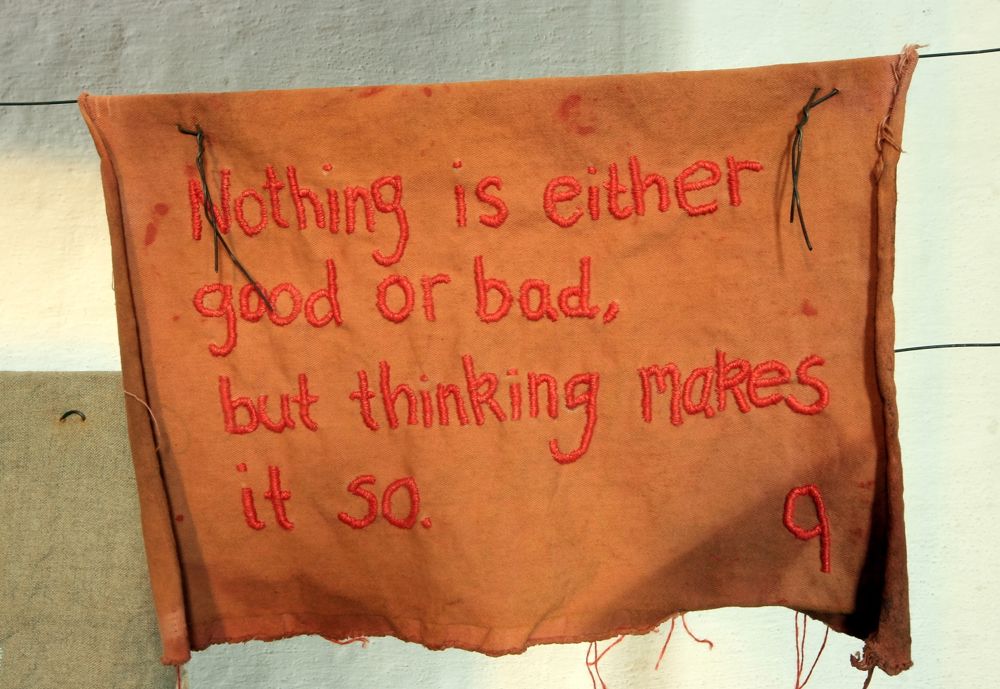 Nothing is either
good or bad,
but thinking makes
it so.
9